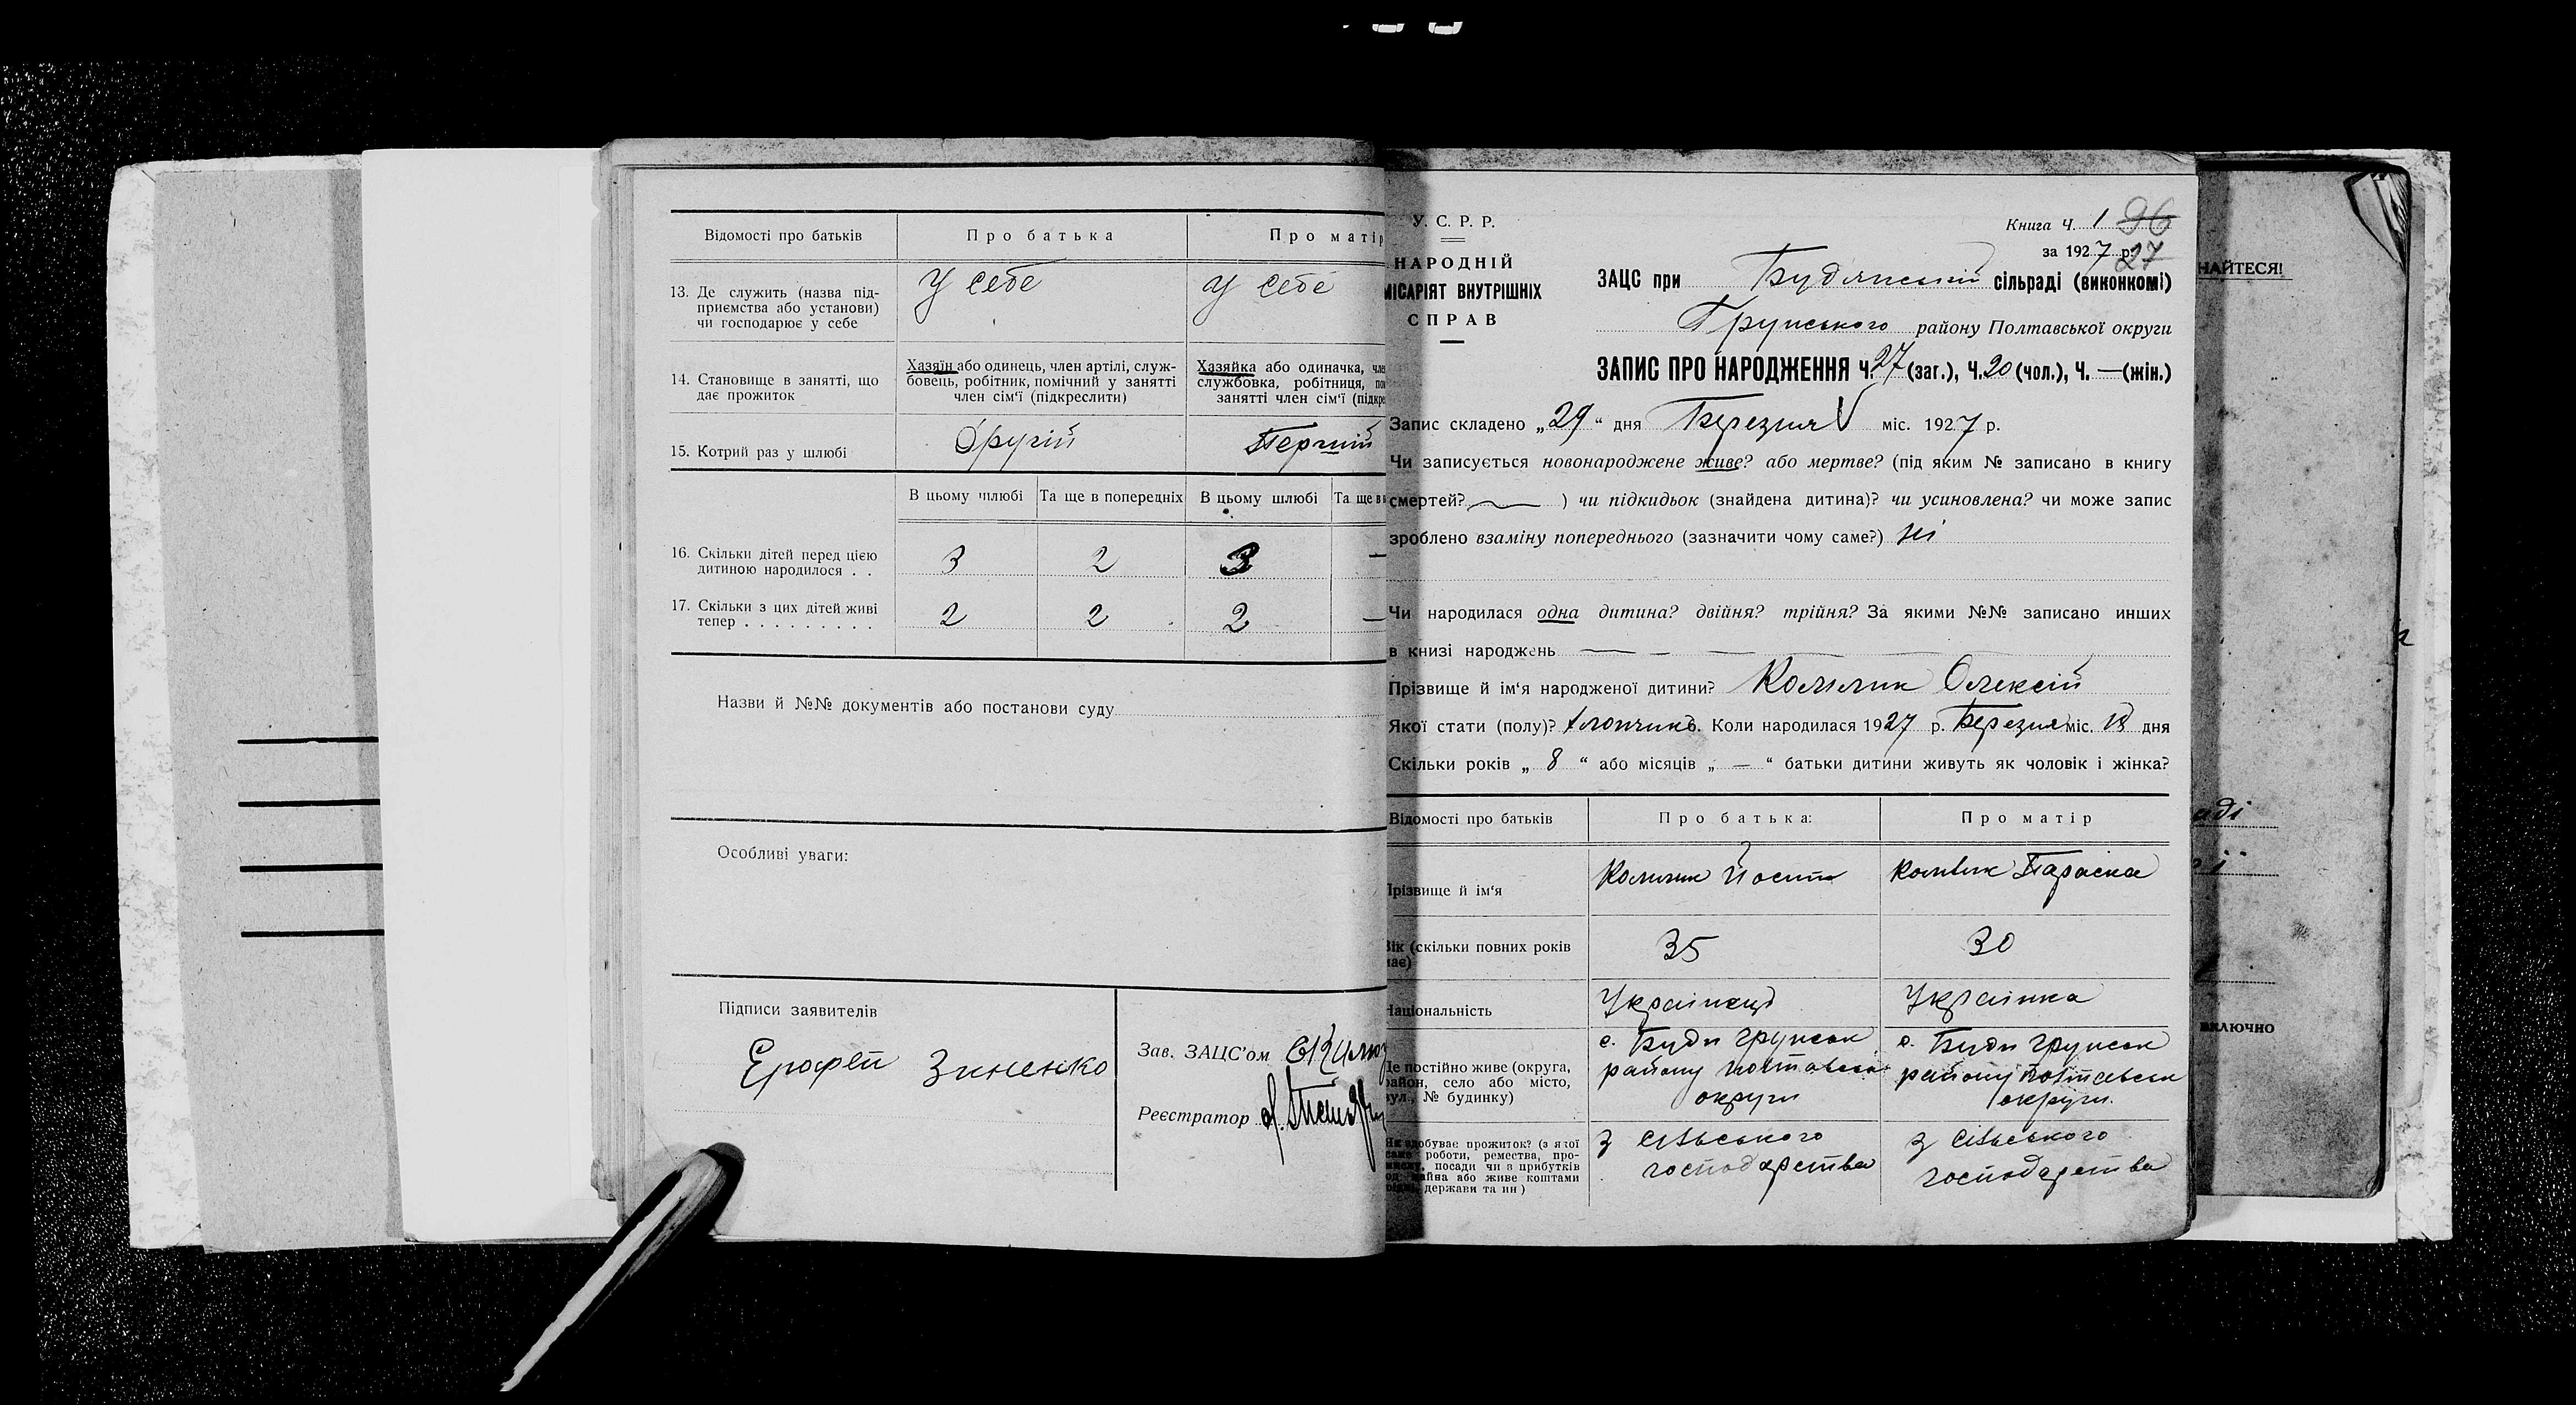 Відомості про батьків
Про батька
Про матір
13. Де служить (назва під-
приємства або установи)
чи господарює у себе
У себе
У себе
14. Становище в занятті, що
дає прожиток
Хазяїн або одинець, член артілі, служ-
бовець, робітник, помічний у занятті
член сім'ї (підкреслити)
Хазяйка або одиначка, чле
службовка, робітниця, по
занятті член сім'ї (підкре
15. Котрий раз у шлюбі
Другій
Перший
В цьому шлюбі
Та ще в попередніх
В цьому шлюбі
Та ще в
16. Скільки дітей перед цією
дитиною народилося . .
3
2
3
—
17. Скільки з цих дітей живі
тепер . . . . . . . . .
2
2
2
—
Назви й №№ документів або постанови суду
Особливі уваги:
Підписи заявителів
Ерофей Зиненко
Зав. ЗАЦС'ом
Реєстратор
У. С. Р. Р.
НАРОДНІЙ
МІСАРІЯТ ВНУТРІШНІХ
СПРАВ
Книга Ч. 1 96
за 1927 р. 27
ЗАЦС при Будянській сільраді (виконкомі)
Грунського району Полтавської округи
ЗАПИС ПРО НАРОДЖЕННЯ Ч. 27 (заг.), Ч. 20 (чол.), Ч. — (жін.)
Запис складено „29“ дня Березня міс. 1927 р.
Чи записується новонароджене живе? або мертве? (під яким № записано в книгу
смертей? ) чи підкидьок (знайдена дитина)? чи усиновлена? чи може запис
зроблено взаміну попереднього (зазначити чому саме?) ні
Чи народилася одна дитина? двійня? трійня? За якими №№ записано инших
в книзі народжень — — —
Прізвище й ім'я народженої дитини? Олексій
Якої стати (полу)? хлопчикъ. Коли народилася 1927 р. Березня міс. 18 дня
Скільки років „ 8 “ або місяців „ — “ батьки дитини живуть як чоловік і жінка?
Відомості про батьків
Про батька:
Про матір
Прізвище й ім'я
Йосип
Параска
Вік (скільки повних років
має)
35
30
Національність
Українець
Українка
Де постійно живе (округа,
район, село або місто,
вул., № будинку)
с. Буди Грунськ
району Полтавської
округи
с. Буди Грунськ
району Полтавськ
округи.
Як здобуває прожиток? (з якої
саме роботи, ремества, про-
мислу, посади чи з прибутків
од майна або живе коштами
держави та ин)
З сільського
господарства
З сільського
господарства
НАЙТЕСЯ!
аді
ї
включно